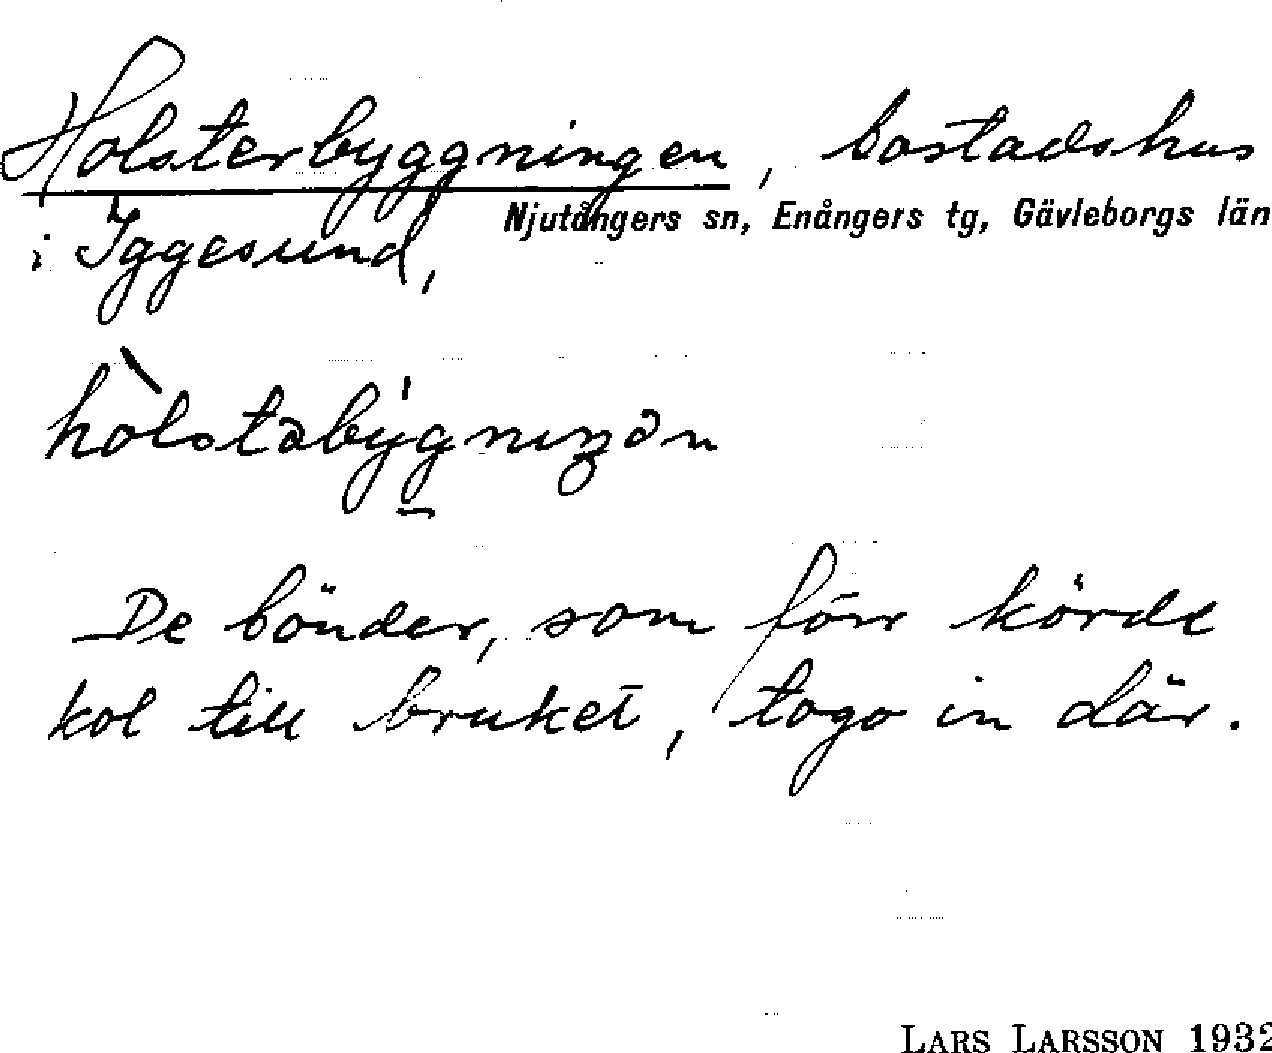 Holsterbyggningen, bostadshus
Njutångers sn, Enångers tg, Gävleborgs län
i Iggesund,
hòlstəby̍gnıŋən
De bönder, som förr körde
kol till bruket, togo in där.
LARS LARSSON 1932